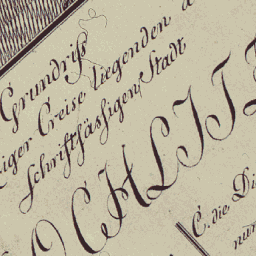 Grundriſs
iger Creise liegenden
schriftsässigen Stadt
OCHLITZ
C. die Di
nur